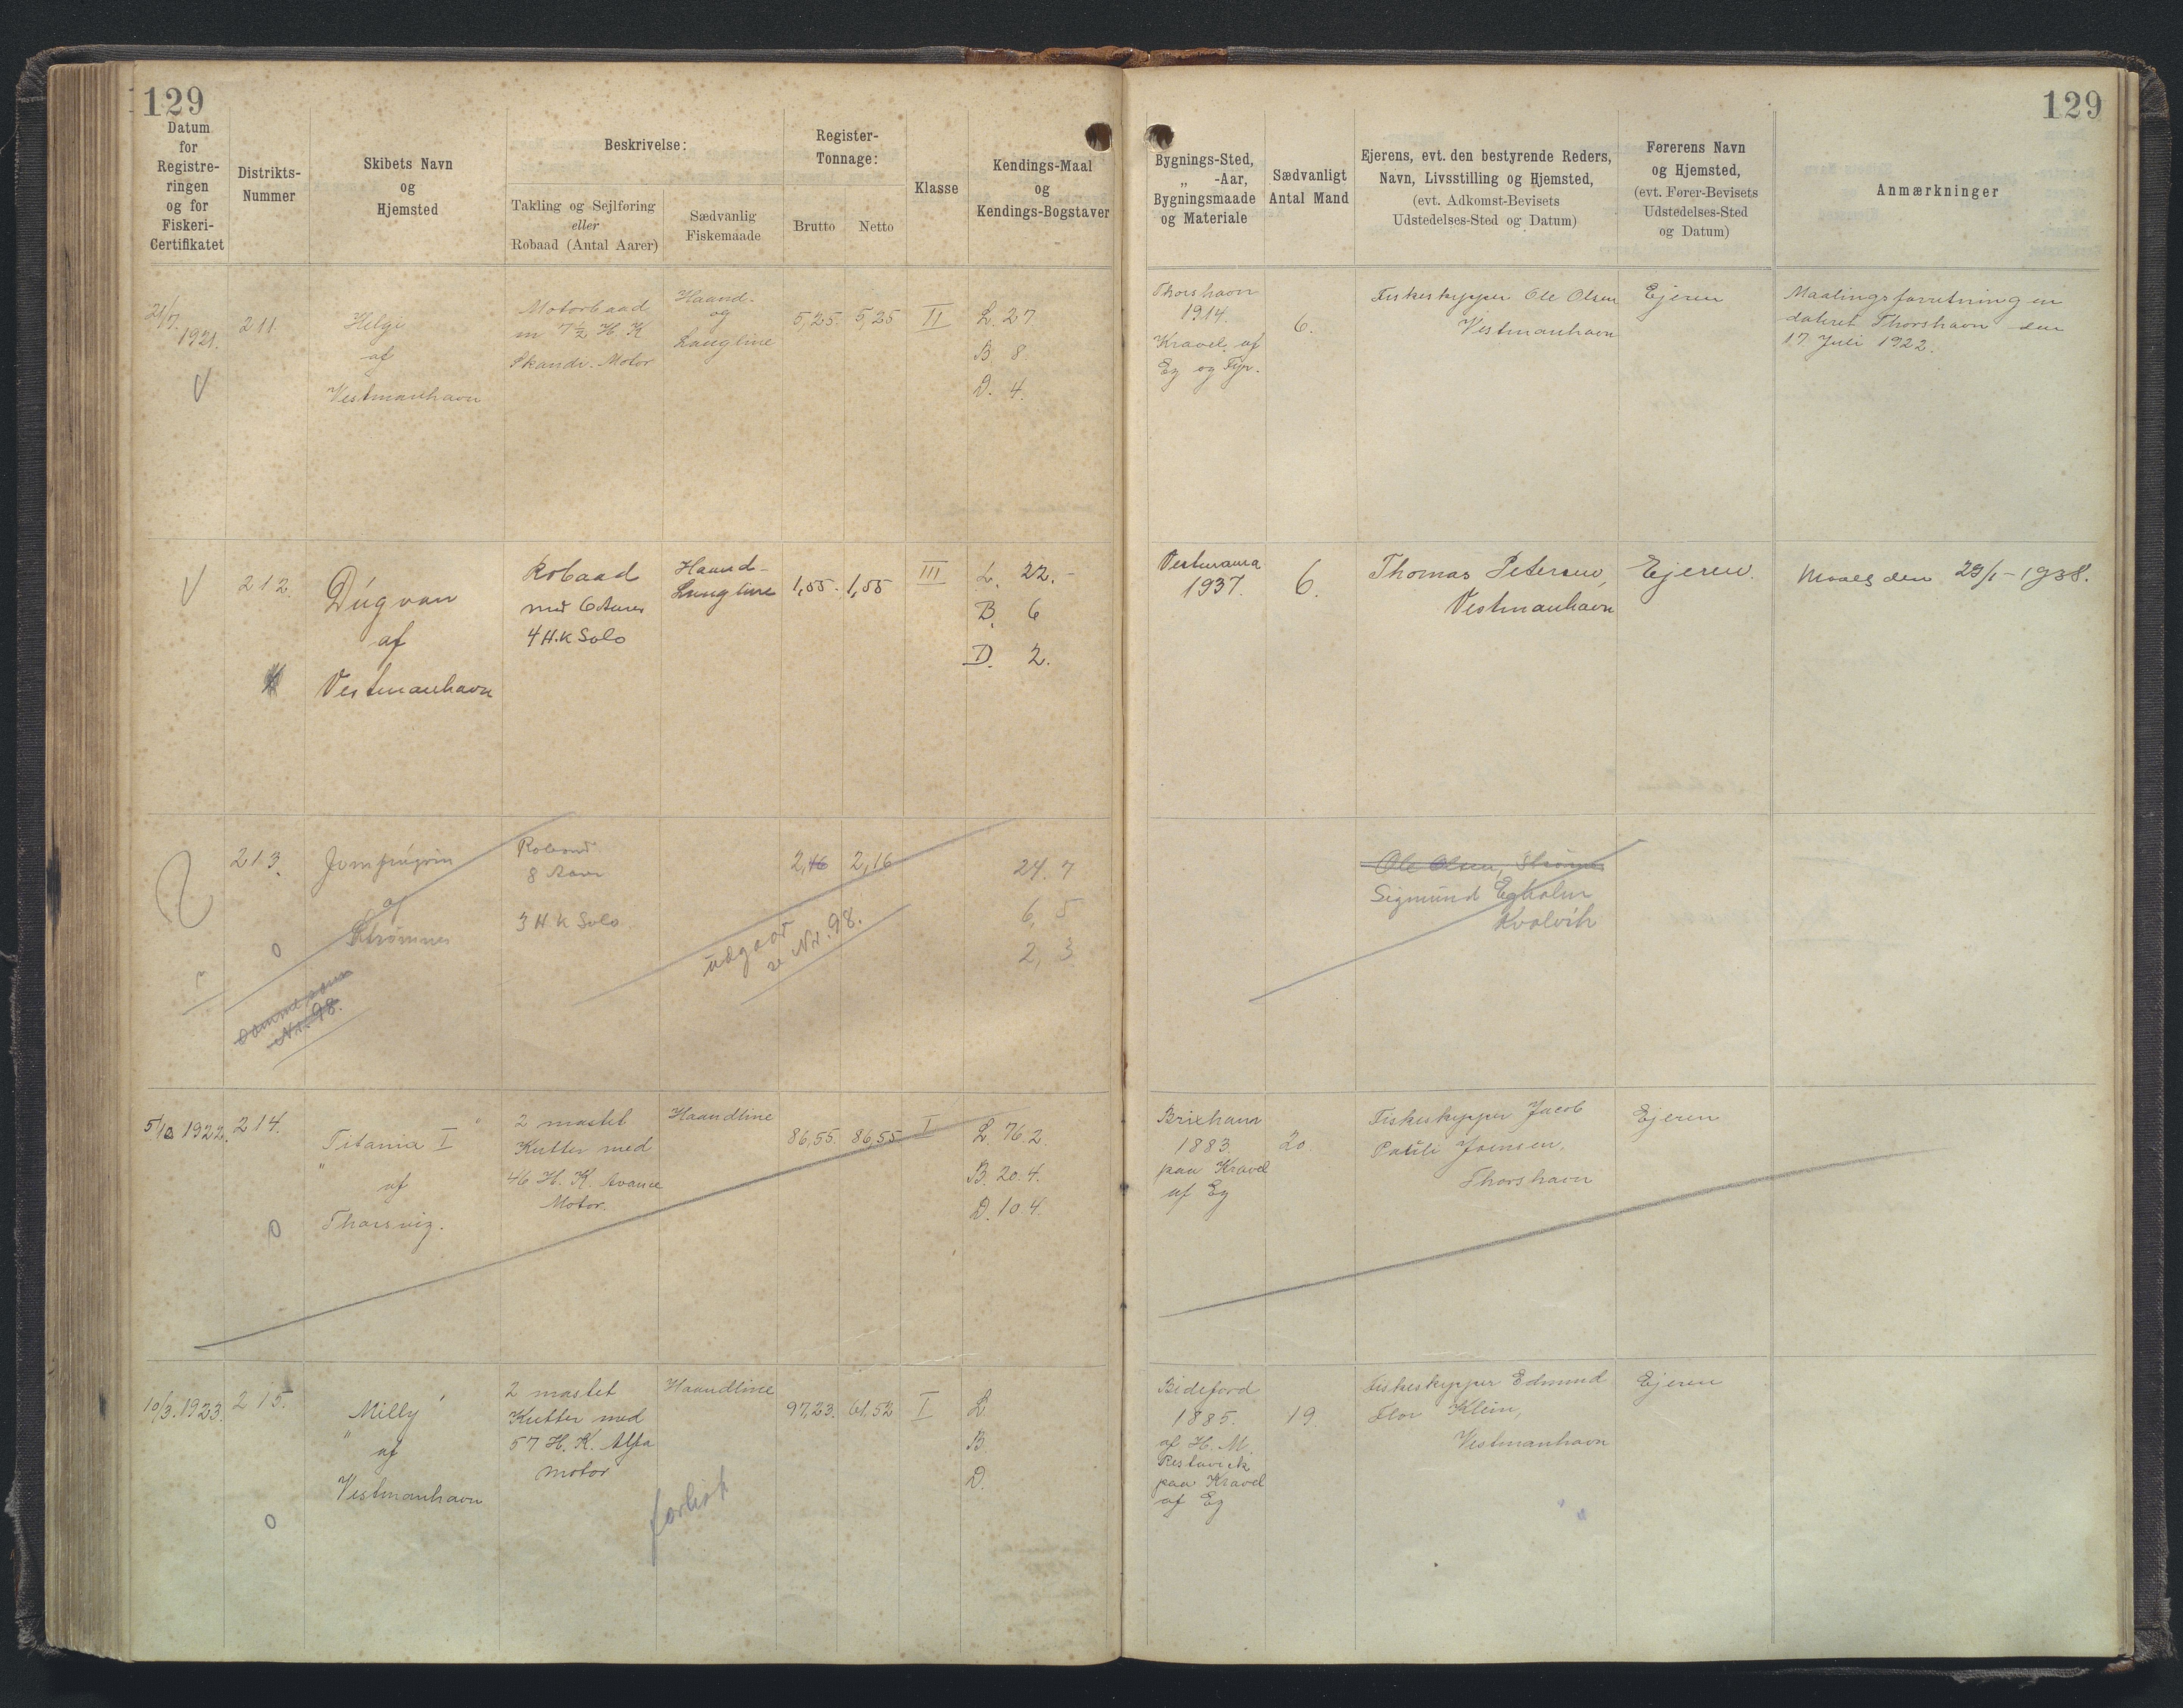 129
129
Datum
for
Registre-
ringen
og for
Fiskeri-
Certifikatet
Distrikts-
Nummer
Skibets Navn
og
Hjemsted
Beskrivelse:
Takling og Sejlføring
eller
Robaad (Antal Aarer)
Sædvanlig
Fiskemaade
Register-
Tonnage:
Brutto
Netto
Klasse
Kendings-Maal
og
Kendings-Bogstaver
Bygnings-Sted,
„ -Aar,
Bygningsmaade
og Materiale
Sædvanligt
Antal Mand
Ejerens, evt. den bestyrende Reders,
Navn, Livsstilling og Hjemsted,
(evt. Adkomst-Bevisets
Udstedelses-Sted og Datum)
Førerens Navn
og Hjemsted,
(evt. Fører-Bevisets
Udstedelses-Sted
og Datum)
Anmærkninger
21/7.
1921.
211.
Helgi
af
Vestmanhavn
Motorbaad
m 7½ H. K
Skandi. Motor
Haand-
og
Langline
5,25.
5,25
II
L. 27
B. 8.
D. 4.
Thorshavn
1914.
Kravel af
Eg og Fyr.
6.
Fiskeskypper Ole Olsen
Vestmanhavn
Ejeren
Maalingsforretningen
dateret Thorshavn den
17. Juli 1922.
212.
Dúgvan
af
Vestmanhavn
Robaad
med 6 Aarer
4 H.K Solo
Haand-
Langline
1,55.
1,55
III
L. 22.-
B. 6
D. 2.
Vestmanna
1937.
6.
Thomas Petersen,
Vestmanhavn
Ejeren.
Maalt den 29/1-1938.
213.
Jomfrúgvin
af
Strømnes
Robaad
8 Aarer
3 H K Solo
2,16
2,16
24. 7
6, 5
2, 3
udgaar
se Nr. 98.
samme som
Nr. 98.
Ole Olsen, Strømnes
Sigmund Egholm
Kvalvik
5/10 1922.
214.
"Titania I"
af
Thorsvig.
2 mastet
Kutter med
46 H. K. Avance
Motor.
Haandline
86,55.
86,55
I
L. 76.2.
B. 20.4.
D. 10.4.
Brixham
1883.
paa Kravel
af Eg
20
Fiskeskypper Jacob
Pauli Joensen,
Thorshavn
Ejeren
10/3. 1923.
215.
"Milly"
af
Vestmanhavn
2 mastet
Kutter med
57 H. K. Alfa
motor
Haandline
97,23.
61,52
I
L.
B.
D.
forlist
Bideford
1885.
af H. M.
Restarick
paa Kravel
af Eg
19.
Fiskeskypper Edmund
Flor Klein,
Vestmanhavn
Ejeren